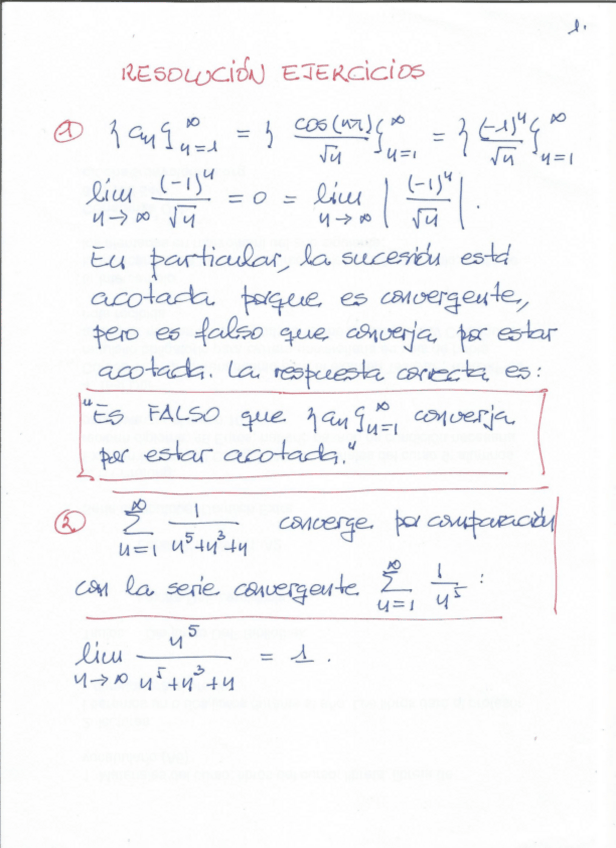 1.
RESOLUCIÓN EJERCICIOS
① {an}_{n=1}^∞ = { cos(nπ)/√n }_{n=1}^∞ = { (-1)^n/√n }_{n=1}^∞
lim_{n→∞} (-1)^n/√n = 0 = lim_{n→∞} | (-1)^n/√n |.
En particular, la sucesión está
acotada porque es convergente,
pero es falso que converja por estar
acotada. La respuesta correcta es:
"ES FALSO que {an}_{n=1}^∞ converja
por estar acotada."
② ∑_{n=1}^∞ 1/(n^5+n^3+n) converge por comparación
con la serie convergente ∑_{n=1}^∞ 1/n^5 :
lim_{n→∞} n^5/(n^5+n^3+n) = 1.